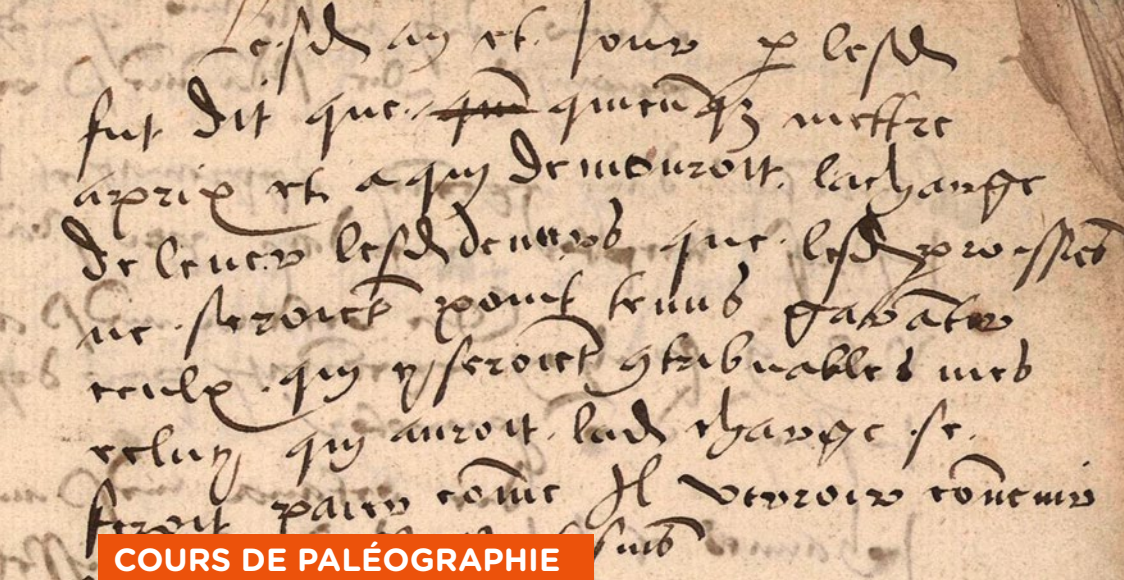 Lesd an et Jour p lesd
fut dit que qui men mettre
aprix et a qui demouroit lacharge
de lever lesd deniers que lesd parroissiens
ne seroient point tenus garantir
ceulx qui y seroient gtribuables mes
celuy qui auroit lad charge se
feroit paier come Il verroit
COURS DE PALÉOGRAPHIE